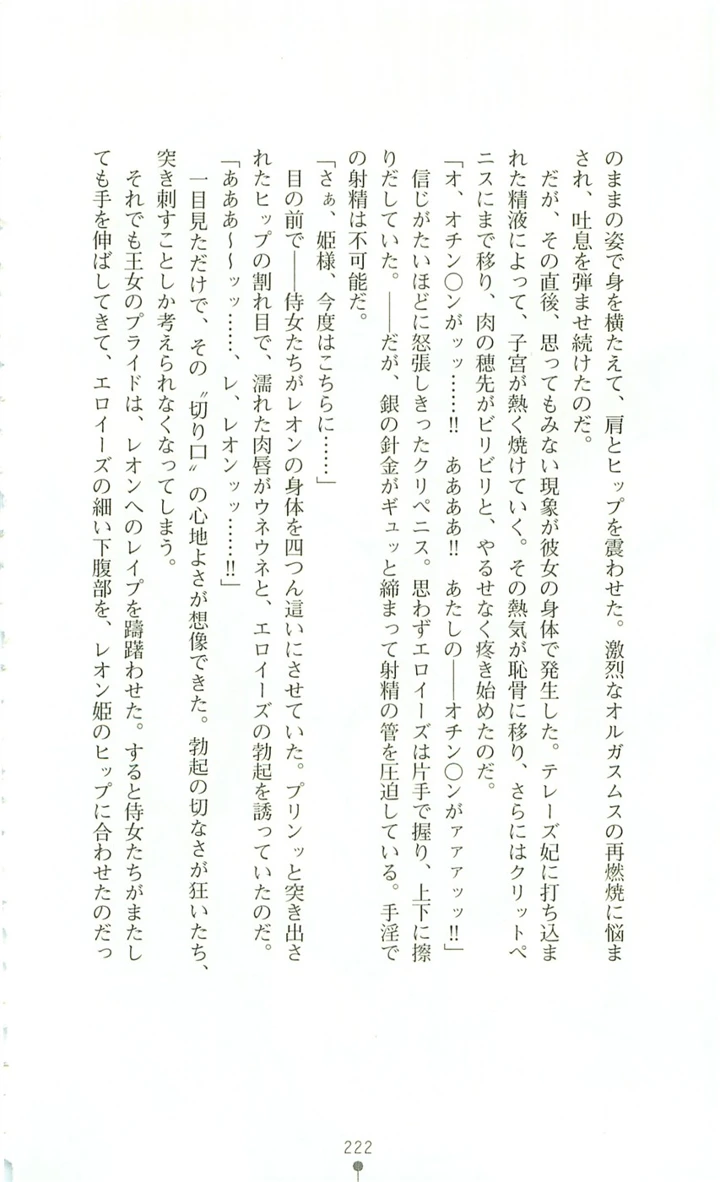 のままの姿で身を横たえて、肩とヒップを震わせた。激烈なオルガスムスの再燃焼に悩ま
され、吐息を弾ませ続けたのだ。
だが、その直後、思ってもみない現象が彼女の身体で発生した。テレーズ妃に打ち込ま
れた精液によって、子宮が熱く焼けていく。その熱気が恥骨に移り、さらにはクリットペ
ニスにまで移り、肉の穂先がビリビリと、やるせなく疼き始めたのだ。
「オ、オチン〇ンがッッ……!! ああああ!! あたしの――オチン〇ンがァァァッッ!!」
信じがたいほどに怒張しきったクリペニス。思わずエロイーズは片手で握り、上下に擦
りだしていた。――だが、銀の針金がギュッと締まって射精の管を圧迫している。手淫で
の射精は不可能だ。
「さぁ、姫様、今度はこちらに……」
目の前で――侍女たちがレオンの身体を四つん這いにさせていた。プリンッと突き出さ
れたヒップの割れ目で、濡れた肉唇がウネウネと、エロイーズの勃起を誘っていたのだ。
「あああ～～ッッ……、レ、レオンッッ……!!」
一目見ただけで、その〝切り口〟の心地よさが想像できた。勃起の切なさが狂いたち、
突き刺すことしか考えられなくなってしまう。
それでも王女のプライドは、レオンへのレイプを躊躇わせた。すると侍女たちがまたし
ても手を伸ばしてきて、エロイーズの細い下腹部を、レオン姫のヒップに合わせたのだっ
222